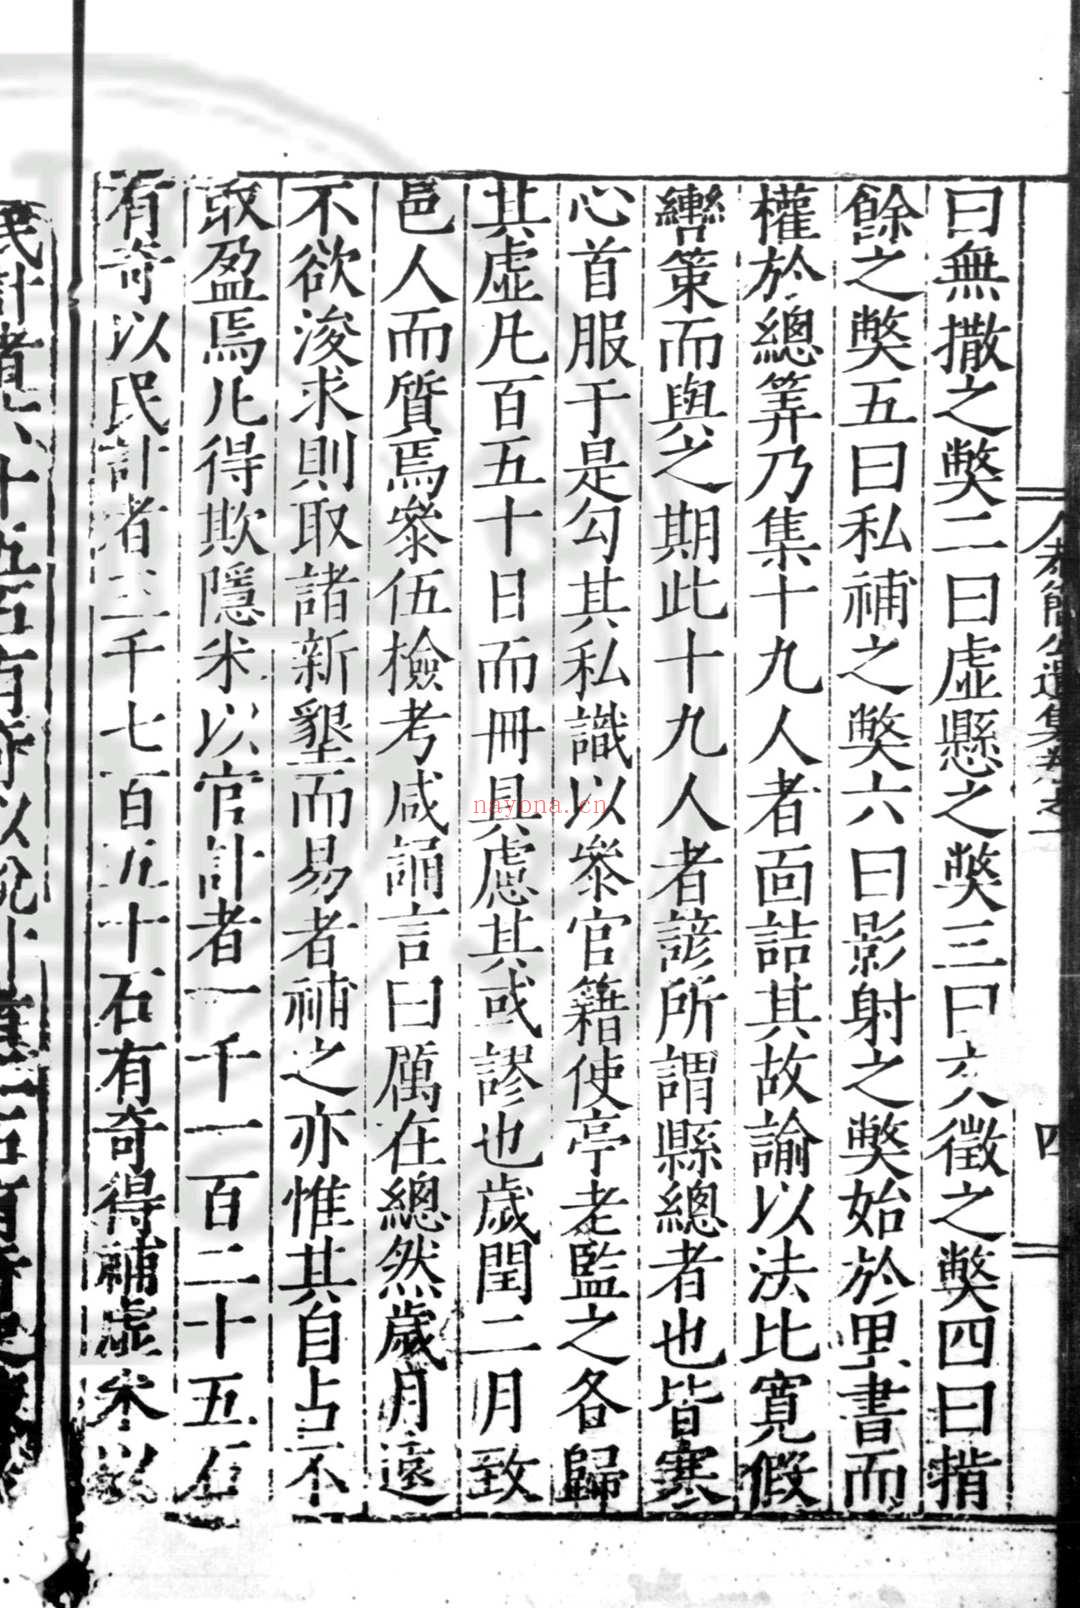 恭簡公遺集卷之一
四
曰無撒之弊二曰虛懸之弊三曰欠徵之弊四曰揹
餘之弊五曰私補之弊六曰影射之弊始於里書而
權於總筭乃集十九人者面詰其故諭以法比寬假
轡策而與之期此十九人者諺所謂縣總者也皆寒
心首服于是勾其私識以叅官籍使亭老監之各歸
其虛凡百五十日而冊具慮其或謬也歲閏二月致
邑人而質焉叅伍檢考咸誦言曰厲在總然歲月遠
不欲浚求則取諸新墾而易者補之亦惟其自占不
取盈焉凡得欺隱米以官計者一千一百二十五石
有奇以民計者三千七百五十石有奇得補虛米以
民計者六十五石有奇以
nayona.cn